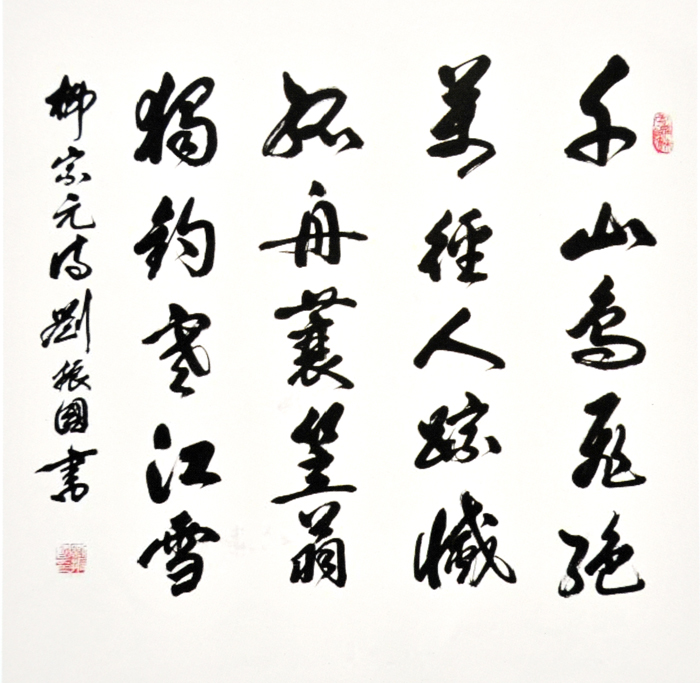 千山鳥飛絕
萬徑人蹤滅
孤舟蓑笠翁
獨釣寒江雪
柳宗元詩劉振國書